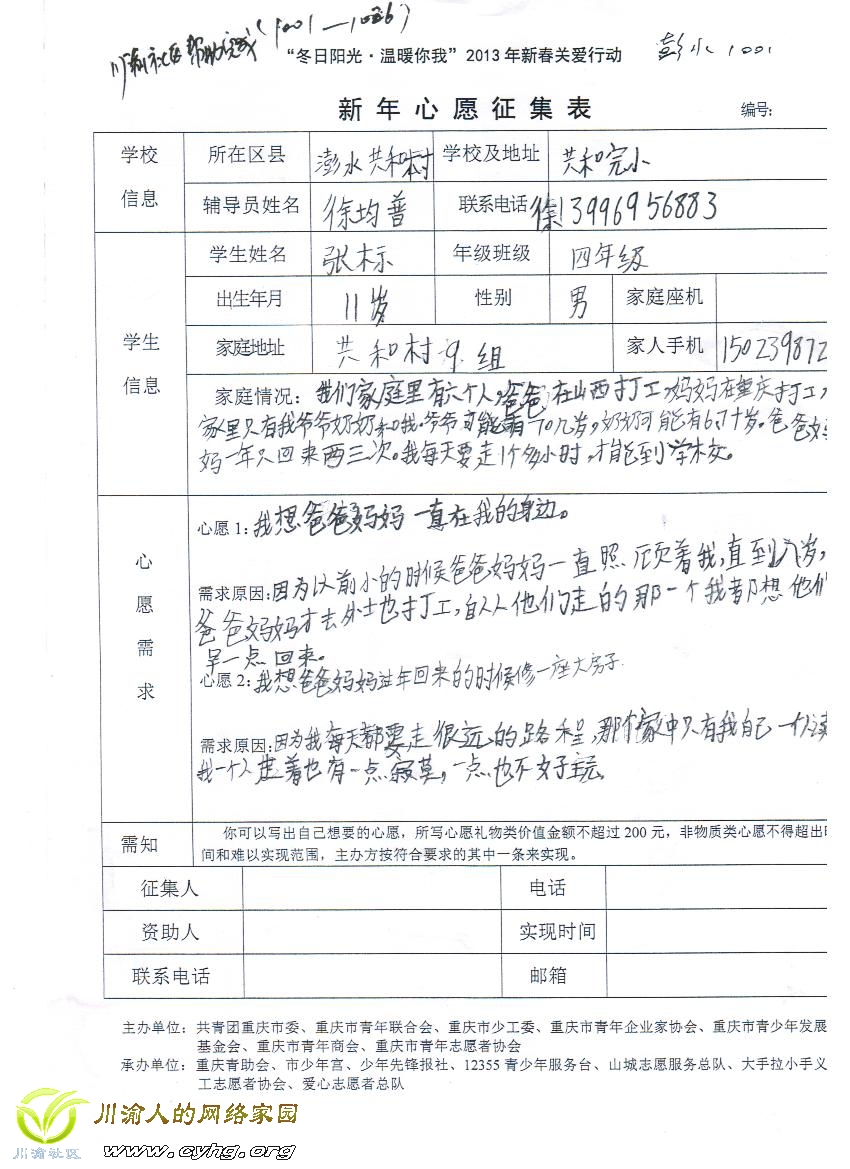 川渝社区帮助完成(1001—1026)
“冬日阳光·温暖你我”2013年新春关爱行动 彭水1001
新年心愿征集表 编号:
学校信息 所在区县 澎水共和村 学校及地址 共和完小
辅导员姓名 徐均普 联系电话 徐13996956883
学生信息 学生姓名 张标 年级班级 四年级
出生年月 11岁 性别 男 家庭座机
家庭地址 共和村9.组 家人手机 150239872
家庭情况:我们家庭里有六个人,爸爸在山西打工,妈妈在重庆打工,
家里只有我爷爷奶奶和我.爷爷可能有70几岁,奶奶可能有6了十岁。爸爸妈
妈一年只回来两三次。我每天要走1个多小时,才能到学校。
心愿需求
心愿1:我想爸爸妈妈一直在我的身边。
需求原因:因为以前小的时候爸爸妈妈一直照顾着我,直到八岁,
爸爸妈妈才去外土也打工,自从他们走的那一个我都想他们
早一点回来。
心愿2:我想爸爸妈妈过年回来的时候修一座大房子.
需求原因:因为我每天都要走很远的路程,那个家中只有我自己一个人读
我一个人走着也有一点寂莫,一点也不好玩。
需知 你可以写出自己想要的心愿,所写心愿礼物类价值金额不超过200元,非物质类心愿不得超出时
间和难以实现范围,主办方按符合要求的其中一条来实现。
征集人 电话
资助人 实现时间
联系电话 邮箱
主办单位:共青团重庆市委、重庆市青年联合会、重庆市少工委、重庆市青年企业家协会、重庆市青少年发展
基金会、重庆市青年商会、重庆市青年志愿者协会
承办单位:重庆青助会、市少年宫、少年先锋报社、12355青少年服务台、山城志愿服务总队、大手拉小手义
工志愿者协会、爱心志愿者总队
川渝人的网络家园
川渝社区 www.cyhg.org